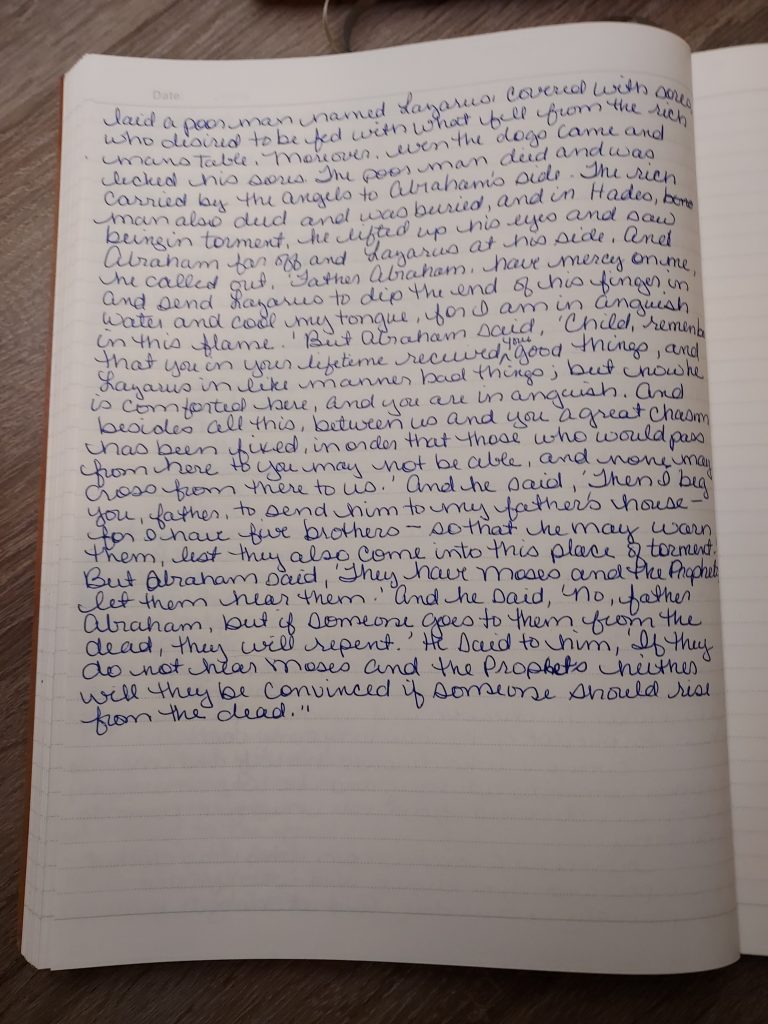 Date
laid a poor man named Lazarus, covered with sores,
who desired to be fed with what fell from the rich
mans table. Moreover, even the dogs came and
licked his sores. The poor man died and was
carried by the angels to Abraham's side. The rich
man also died and was buried, and in Hades,
being in torment, he lifted up his eyes and saw
Abraham far off and Lazarus at his side. And
he called out, 'Father Abraham, have mercy on me,
and send Lazarus to dip the end of his finger in
water and cool my tongue, for I am in anguish
in this flame.' But Abraham said, 'Child, remember
that you in your lifetime received your good things, and
Lazarus in like manner bad things; but now he
is comforted here, and you are in anguish. And
besides all this, between us and you a great chasm
has been fixed, in order that those who would pass
from here to you may not be able, and none may
cross from there to us.' And he said, 'Then I beg
you, father, to send him to my father's house—
for I have five brothers—so that he may warn
them, lest they also come into this place of torment.'
But Abraham said, 'They have Moses and the Prophets;
let them hear them.' And he said, 'No, father
Abraham, but if someone goes to them from the
dead, they will repent.' He said to him, 'If they
do not hear Moses and the Prophets neither
will they be convinced if someone should rise
from the dead."